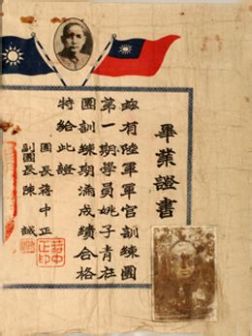 畢業證書
茲有陸軍軍官訓練團
第一期學員姚子青在
團訓練期滿成績合格
特給此證
團長蔣中正
蔣中正印
副團長陳誠